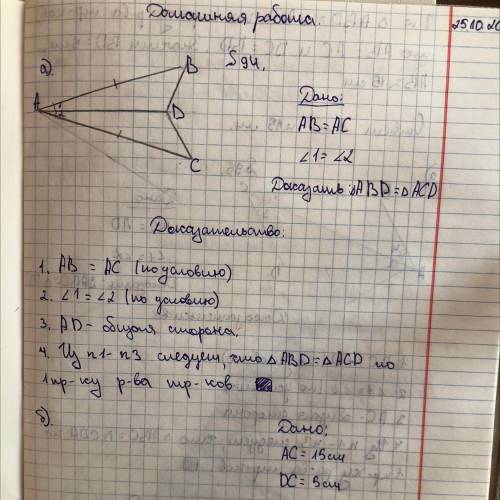 Домашняя работа.
25.10.20
§ 94.
а)
B
A
1
2
D
C
Дано:
AB=AC
∠1=∠2
Доказать: △ABD=△ACD
Доказательство:
1. AB = AC (по условию)
2. ∠1=∠2 (по условию)
3. AD- общая сторона.
4. Из п1-п3 следует, что △ABD=△ACD по
1 пр-ку р-ва тр-ков
б).
Дано:
AC=15см
DC=5см